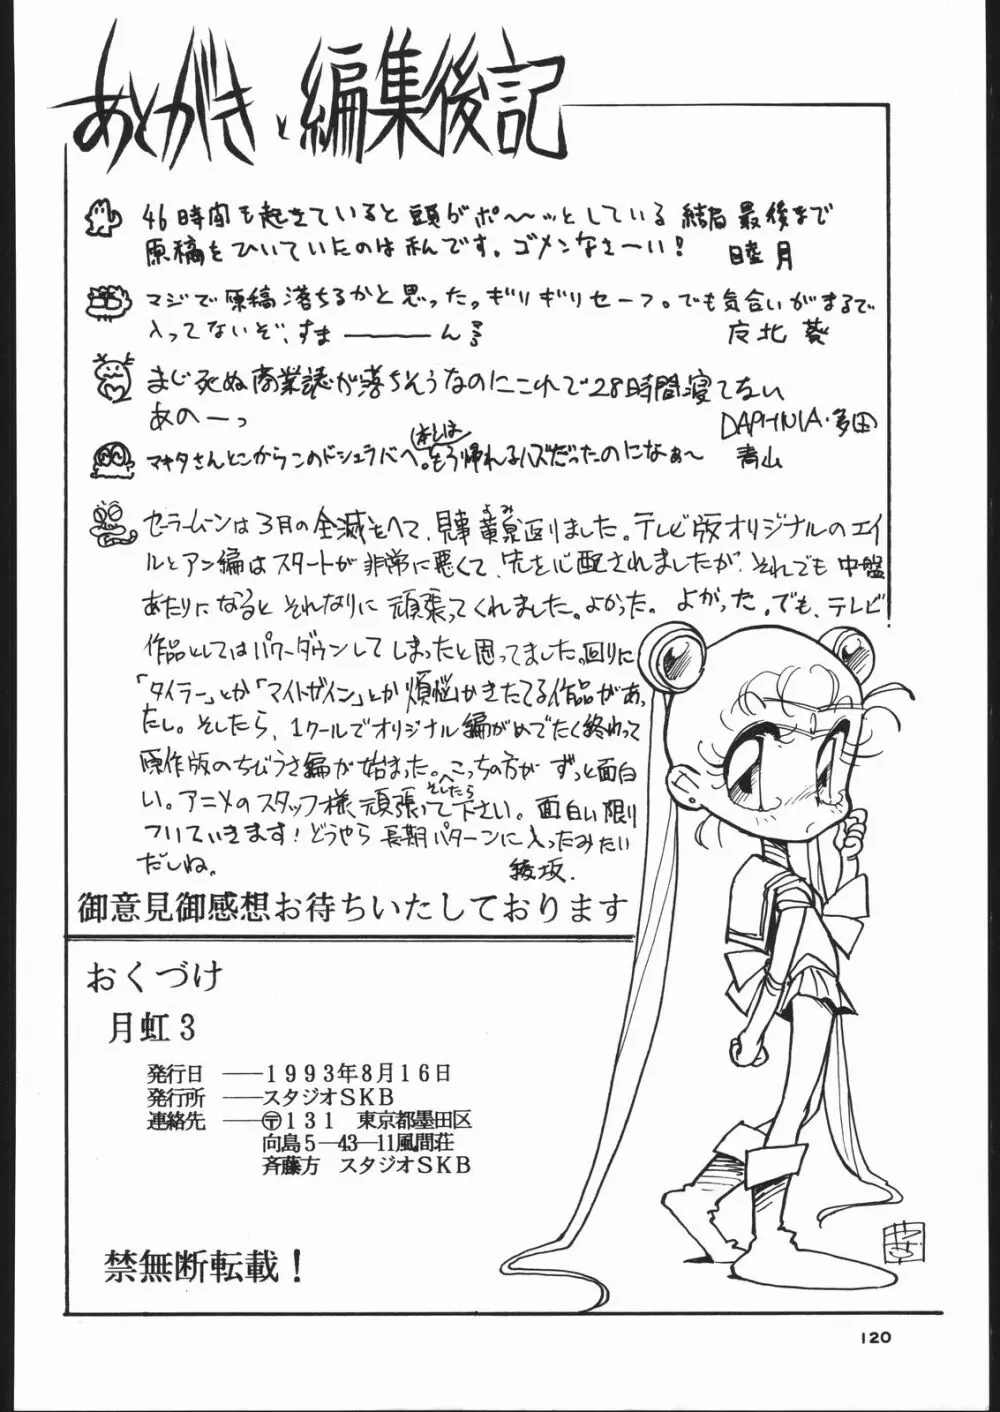 あとがきと編集後記
46時間も起きていると頭がポ〜〜ッとしている 結局最後まで
原稿をひいていたのは私んです。ゴメンなさ〜い！ 睦月
マジで原稿落ちるかと思った。ギリギリセーフ。でも気合いがまるで
入ってないぞ、すま————ん
まじ死ぬ商業誌が落ちそうなのにこれで28時間寝てない
あのーっ DAPHNIA・多田
マキタさんとこからこのドシュラバへ。もう帰れるハズだったのになぁ〜 青山
セーラームーンは3月の全滅をへて、見事黄泉返りました。テレビ版オリジナルのエイ
よみ
ルとアン編はスタートが非常に悪くて、先を心配されましたが、それでも中盤
あたりになるとそれなりに頑張ってくれました。よかった。よかった。でも、テレビ
作品としてはパワーダウンしてしまったと思ってました。回りに
「タイラー」とか「マイトガイン」とか煩悩かきたてる作品があっ
たし。そしたら、1クールでオリジナル編がめでたく終わって
原作版のちびうさ編が始まった。こっちの方がずっと面白
そしたら
い。アニメのスタッフ様頑張って下さい。面白い限り
ついていきます！どうやら長期パターンに入ったみたい
だしね。 綾坂.
御意見御感想お待ちいたしております
おくづけ
月虹3
発行日 ——1993年8月16日
発行所 ——スタジオSKB
連絡先 ——〒131 東京都墨田区
向島5—43—11風間荘
斉藤方 スタジオSKB
禁無断転載！
120